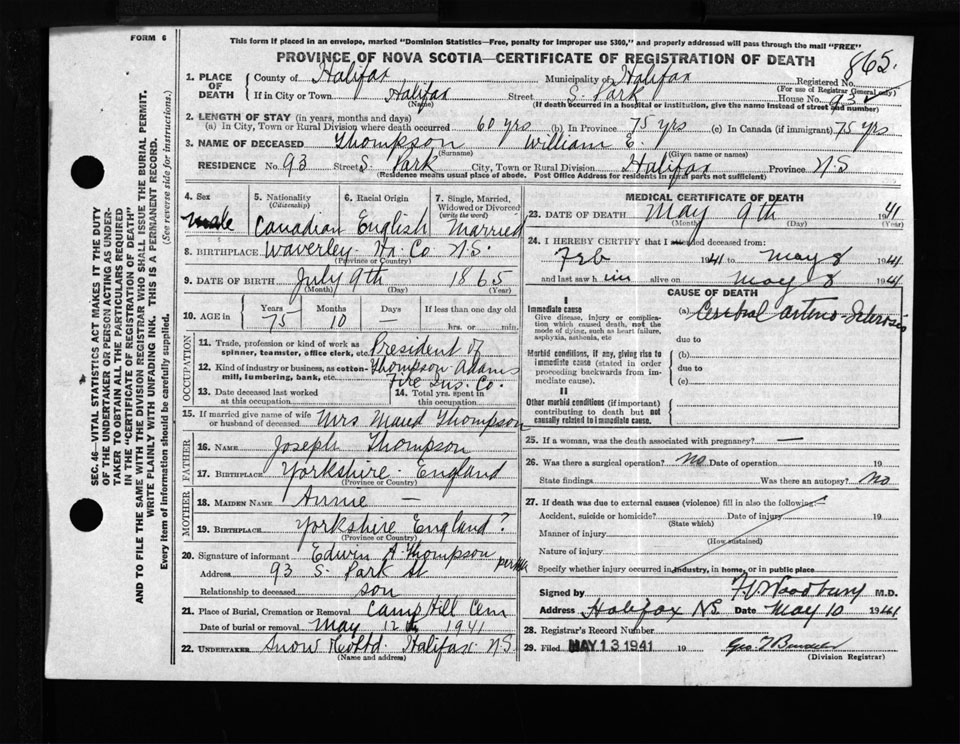 FORM 6
This form if placed in an envelope, marked "Dominion Statistics—Free, penalty for improper use $300," and properly addressed will pass through the mail "FREE"
PROVINCE OF NOVA SCOTIA—CERTIFICATE OF REGISTRATION OF DEATH
865.
1. PLACE OF DEATH
County of Halifax Municipality of Halifax Registered No.
(For use of Registrar General only)
If in City or Town Halifax Street S. Park House No. 93
(Name) (If death occurred in a hospital or institution, give the name instead of street and number)
2. LENGTH OF STAY (in years, months and days)
(a) In City, Town or Rural Division where death occurred 60 yrs (b) In Province 75 yrs (c) In Canada (if immigrant) 75 yrs
3. NAME OF DECEASED Thompson William E.
(Surname) (Given name or names)
RESIDENCE No. 93 Street S. Park City, Town or Rural Division Halifax Province N.S
(Residence means usual place of abode. Post Office Address for residents in rural parts not sufficient)
4. Sex 5. Nationality (Citizenship) 6. Racial Origin 7. Single, Married, Widowed or Divorced (write the word)
male Canadian English Married
8. BIRTHPLACE Waverley Ha. Co N.S.
(Province or Country)
9. DATE OF BIRTH July 9th 1865
(Month) (Day) (Year)
10. AGE in Years Months Days If less than one day old
75 10 — hrs. or min.
OCCUPATION
11. Trade, profession or kind of work as spinner, teamster, office clerk, etc. President of
12. Kind of industry or business, as cotton-mill, lumbering, bank, etc. Thompson Adams
Fire Ins. Co.
13. Date deceased last worked at this occupation 14. Total yrs. spent in this occupation
15. If married give name of wife or husband of deceased Mrs Maud Thompson
FATHER
16. NAME Joseph Thompson
17. BIRTHPLACE Yorkshire England
(Province or Country)
MOTHER
18. MAIDEN NAME Annie —
19. BIRTHPLACE Yorkshire England?
(Province or Country)
20. Signature of informant Edwin A. Thompson
Address 93 S. Park St
Relationship to deceased son
21. Place of Burial, Cremation or Removal Camp Hill Cem
Date of burial or removal May 12th 1941
22. UNDERTAKER Snow & Co Ltd. Halifax N.S
(Name and address)
MEDICAL CERTIFICATE OF DEATH
23. DATE OF DEATH May 9th 1941
(Month) (Day) (Year)
24. I HEREBY CERTIFY that I attended deceased from:
Feb 1941 to May 8 1941
and last saw him alive on May 8 1941
CAUSE OF DEATH
I
Immediate cause
Give disease, injury or complication which caused death, not the mode of dying, such as heart failure, asphyxia, asthenia, etc
(a) Cerebral Arterio-Sclerosis
due to
Morbid conditions, if any, giving rise to immediate cause (stated in order proceeding backwards from immediate cause).
(b)
due to
(c)
II
Other morbid conditions (if important) contributing to death but not causally related to immediate cause.
25. If a woman, was the death associated with pregnancy? —
26. Was there a surgical operation? no Date of operation 19
State findings Was there an autopsy? no
27. If death was due to external causes (violence) fill in also the following:
Accident, suicide or homicide? Date of injury 19
(State which)
Manner of injury
(How sustained)
Nature of injury
Specify whether injury occurred in industry, in home, or in public place
Signed by F.V. Woodbury M.D.
Address Halifax N.S. Date May 10 1941
28. Registrar's Record Number
29. Filed MAY 13 1941 19
(Division Registrar)
SEC. 46—VITAL STATISTICS ACT MAKES IT THE DUTY
OF THE UNDERTAKER OR PERSON ACTING AS UNDER-
TAKER TO OBTAIN ALL THE PARTICULARS REQUIRED
IN THE "CERTIFICATE OF REGISTRATION OF DEATH"
AND TO FILE THE SAME WITH THE DIVISION REGISTRAR WHO SHALL ISSUE THE BURIAL PERMIT.
WRITE PLAINLY WITH UNFADING INK. THIS IS A PERMANENT RECORD.
Every item of information should be carefully supplied. (See reverse side for instructions.)